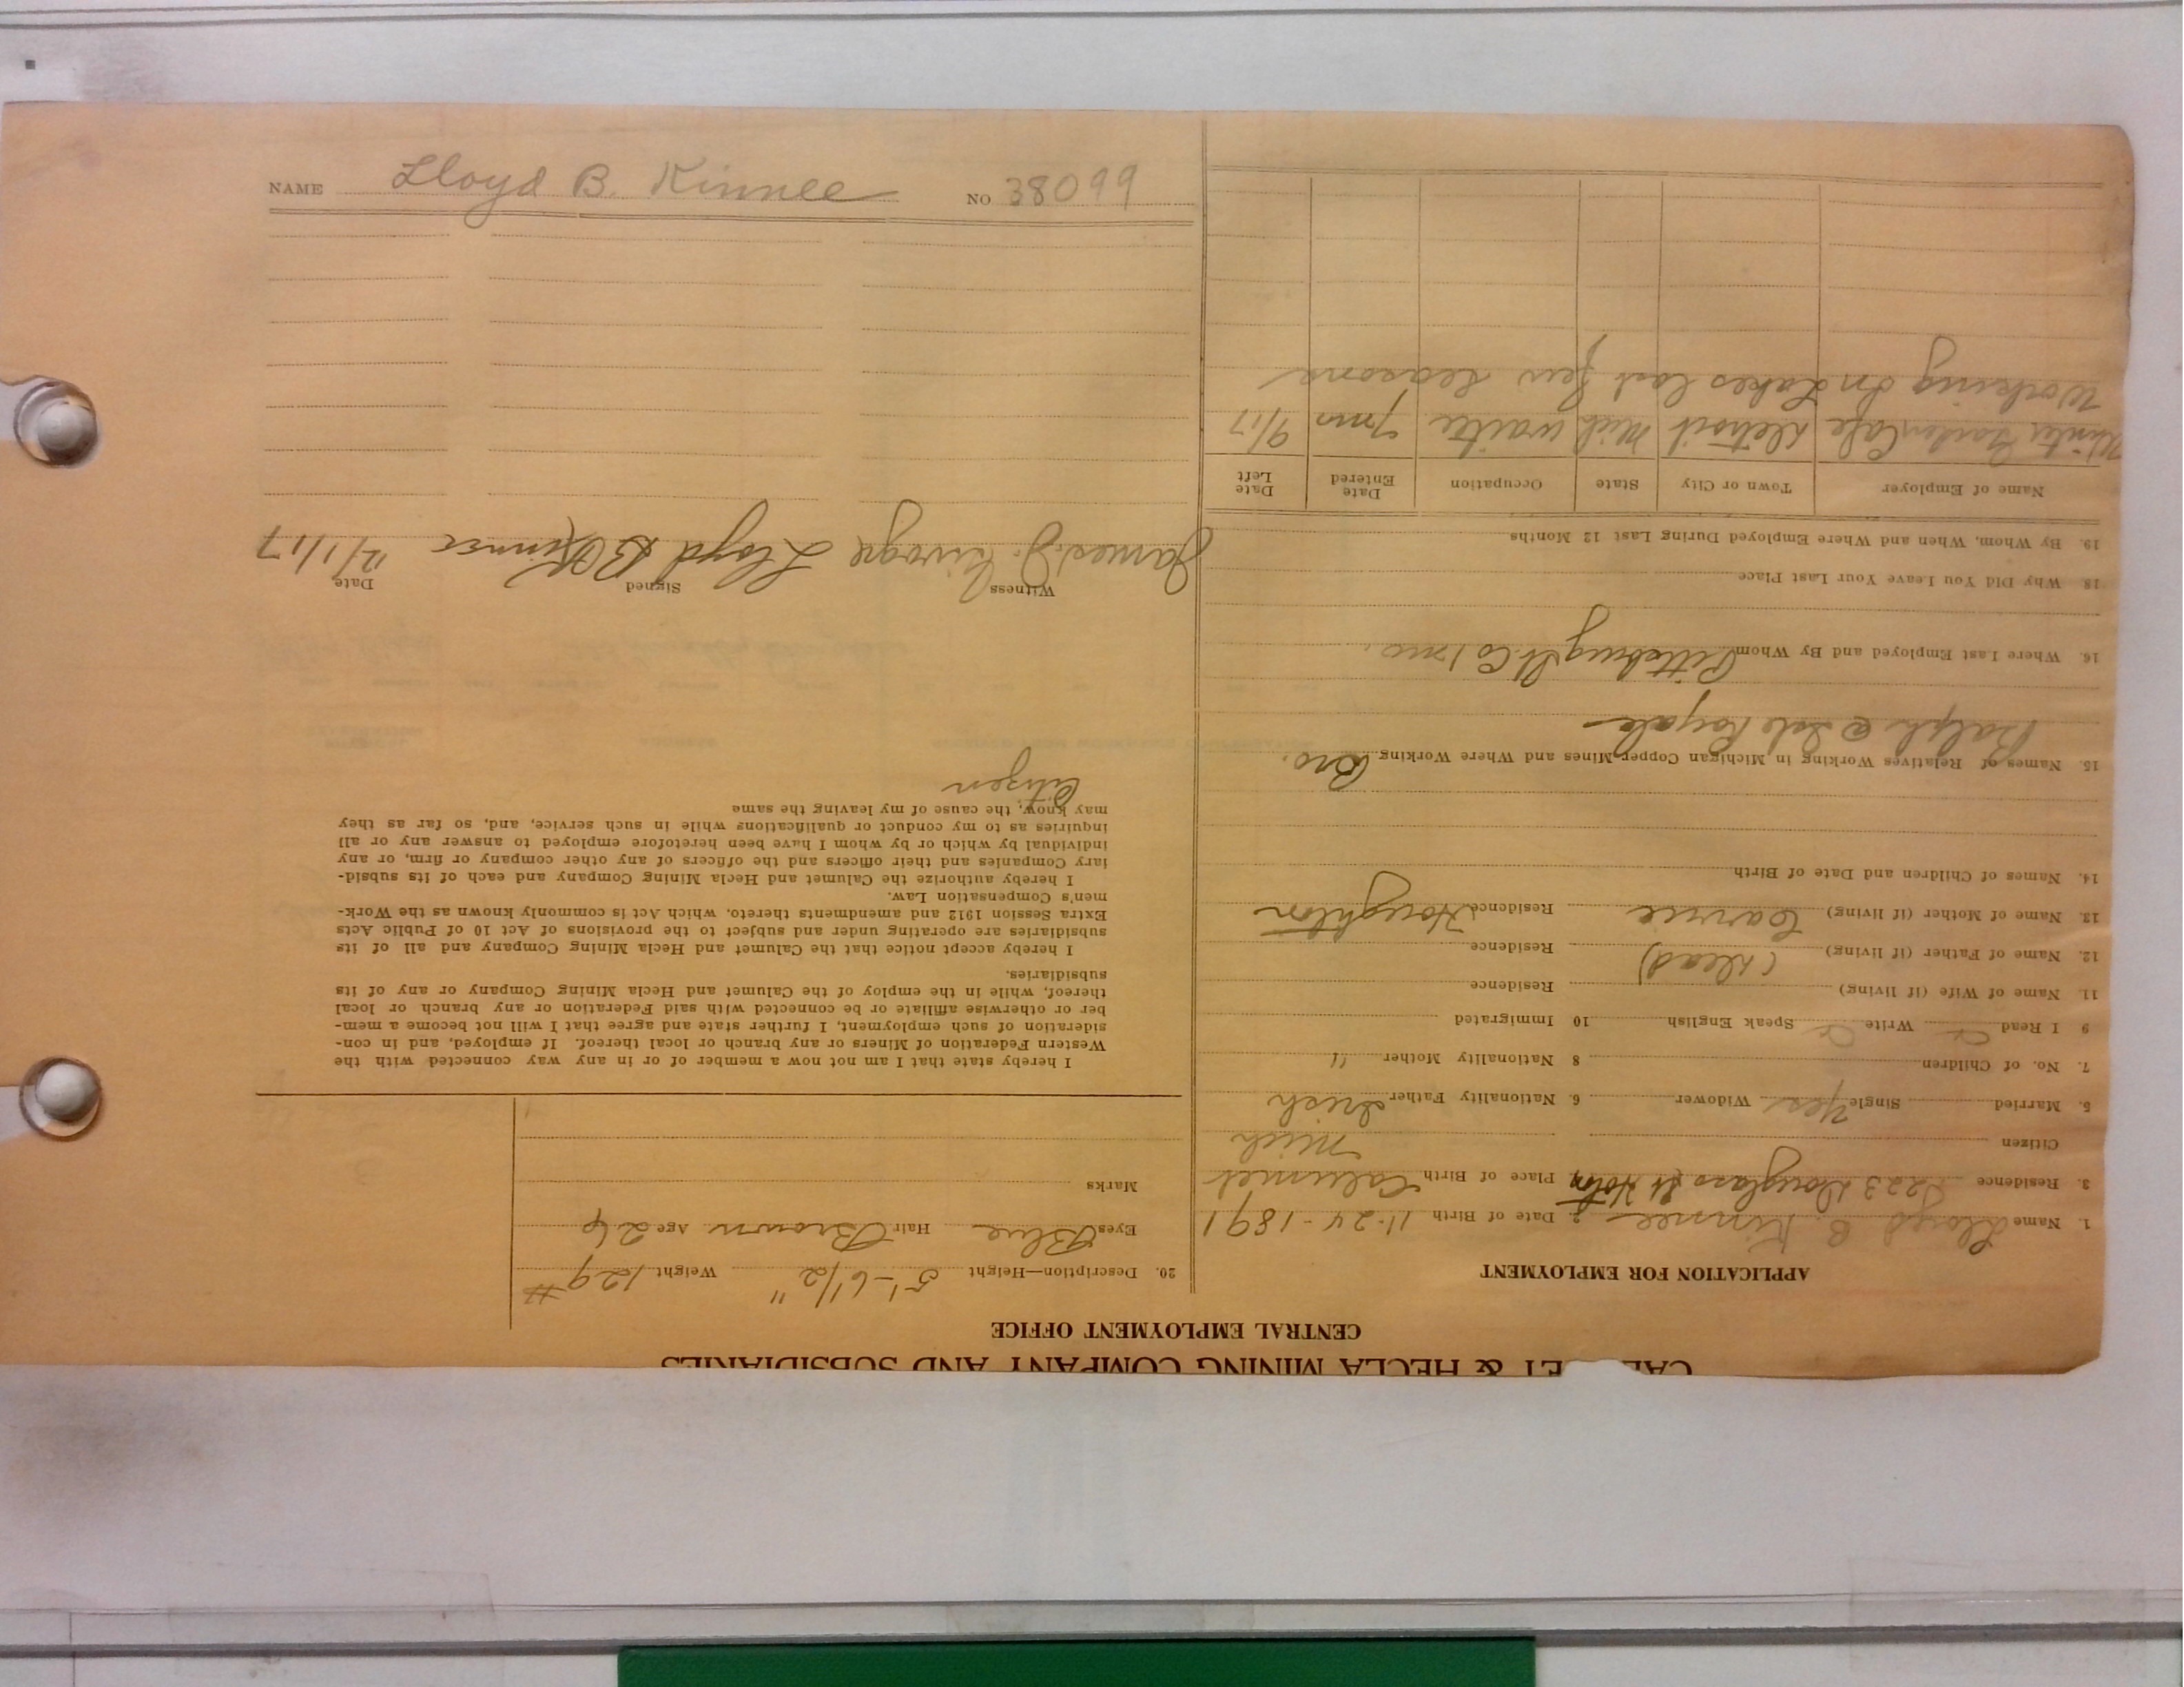 NAME Lloyd B. Kinnee NO 38099
CALUMET & HECLA MINING COMPANY AND SUBSIDIARIES
CENTRAL EMPLOYMENT OFFICE
APPLICATION FOR EMPLOYMENT
1. Name Lloyd B. Kinnee 2. Date of Birth 11-24-1891
3. Residence 223 Douglass St Hoton 4. Place of Birth Calumet
Citizen Mich
5. Married Single Yes Widower 6. Nationality Father Irish
7. No. of Children 8 Nationality Mother "
9 I Read Write Speak English 10 Immigrated
11. Name of Wife (if living) Residence
12. Name of Father (if living) (Dead) Residence
13. Name of Mother (if living) Carrie Residence Houghton
14. Names of Children and Date of Birth
15. Names of Relatives Working in Michigan Copper Mines and Where Working Bro.
Ralph @ Isle Royale
16. Where Last Employed and By Whom Pittsburg St. Co 1 mo.
18. Why Did You Leave Your Last Place
19. By Whom, When and Where Employed During Last 12 Months
Name of Employer Town or City State Occupation Date Entered Date Left
Winter Garden Cafe Detroit Mich waiter 7 mo 9/17
Working on Lakes last few seasons
20. Description—Height 5'-6 1/2" Weight 129 #
Eyes Blue Hair Brown Age 26
Marks
I hereby state that I am not now a member of or in any way connected with the
Western Federation of Miners or any branch or local thereof. If employed, and in con-
sideration of such employment, I further state and agree that I will not become a mem-
ber or otherwise affiliate or be connected with said Federation or any branch or local
thereof, while in the employ of the Calumet and Hecla Mining Company or any of its
subsidiaries.
I hereby accept notice that the Calumet and Hecla Mining Company and all of its
subsidiaries are operating under and subject to the provisions of Act 10 of Public Acts
Extra Session 1912 and amendments thereto, which Act is commonly known as the Work-
men's Compensation Law.
I hereby authorize the Calumet and Hecla Mining Company and each of its subsid-
iary Companies and their officers and the officers of any other company or firm, or any
individual by which or by whom I have been heretofore employed to answer any or all
inquiries as to my conduct or qualifications while in such service, and, so far as they
may know, the cause of my leaving the same
Citizen
Witness Signed Date
James J. Lloyd B Kinnee 12/1/17